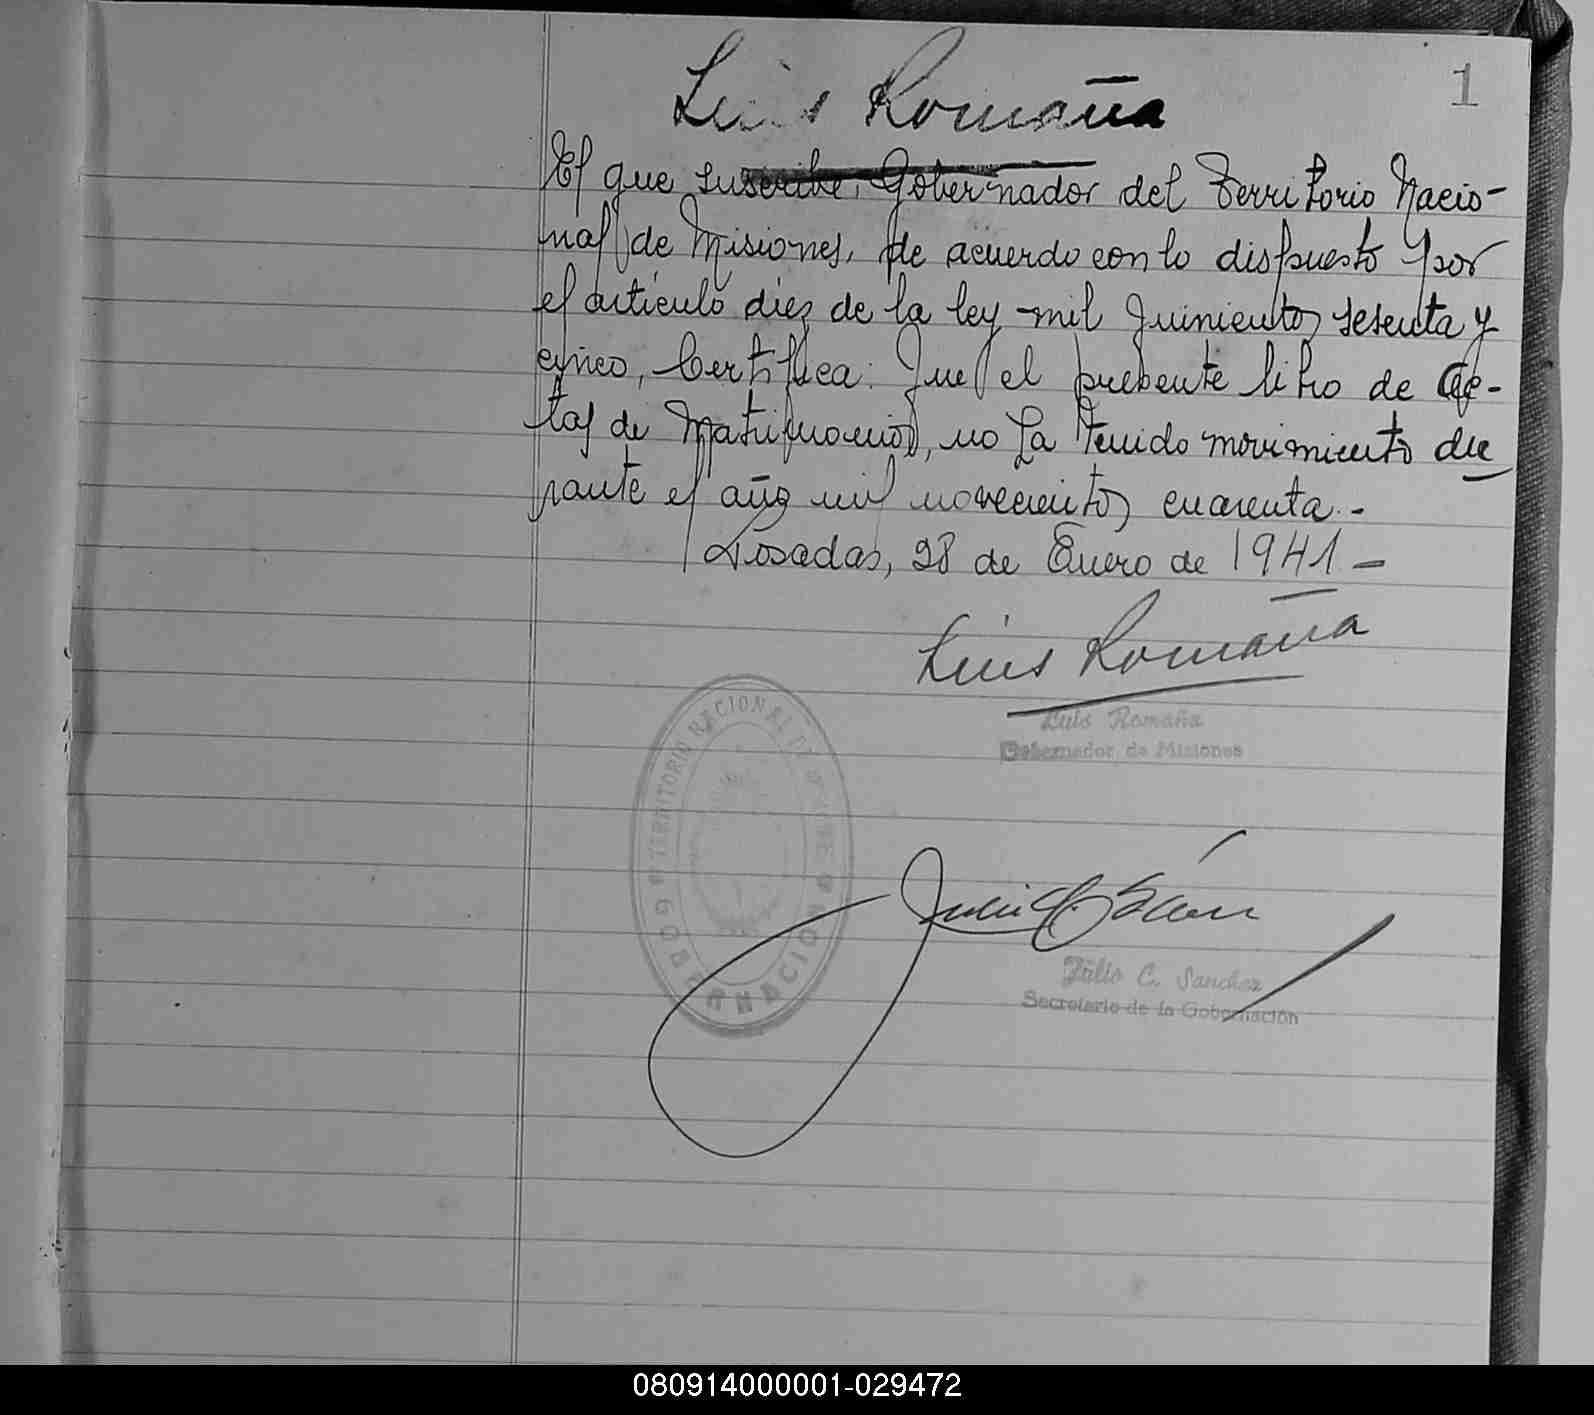 1
Luis Romaña
El que suscribe, Gobernador del Territorio Nacio-
nal de Misiones, de acuerdo con lo dispuesto por
el artículo diez de la ley mil quinientos sesenta y
cinco, Certifica: Que el presente libro de Ac-
tas de Matrimonios, no ha tenido movimiento du
rante el año mil novecientos cuarenta.-
Posadas, 28 de Enero de 1941-
Luis Romaña
Luis Romaña
Gobernador de Misiones
TERRITORIO NACIONAL DE MISIONES
GOBERNACION
Julio C. Sánchez
Julio C. Sanchez
Secretario de la Gobernación
080914000001-029472